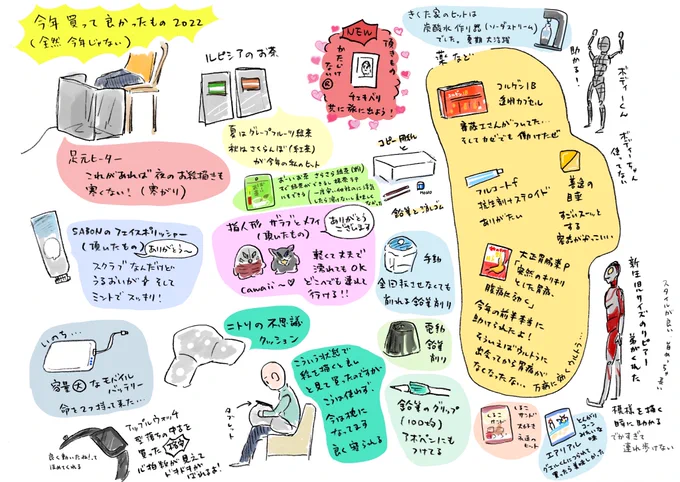 今年買って良かったもの 2022
(全然今年じゃない)
ルピシアのお茶
NEW
頂きもの
かたじけない
チェキパリ
共に旅に出よう!
きくた家のヒットは
炭酸水作り器(ソーダストリーム)
でした。夏期大活躍
助かる!
ボディーくん
ボディちゃん
使ってない
薬など
コルゲン1B
透明カプセル
斎藤工さんがついてた…
そしてカゼでも働けたゼ
足元ヒーター
これがあれば夜のお絵描きも
寒くない!(寒がり)
夏はグレープフルーツ緑茶
秋はさくらんぼ(紅茶)
が今年の私のヒット
コピー用紙
鉛筆と消しゴム
フルコートf
抗生剤+ステロイド
ありがたい
普通の
目薬
すごいスーッと
する
容器がかっこいい
SABONのフェイスポリッシャー
(頂いたもの)
ありがとう〜
スクラブなんだけど
うるおいが
そして
ミントでスッキリ!
指人形 ザラブとメフィ
(頂いたもの)
ありがとう
ございます
軽くて丈夫で
濡れてもOK
どこへでも連れて
行ける!!
cawaii〜♡
手動
全回転させなくても
削れる鉛筆削り
大正胃腸薬P
突然のキリキリ
とした胃痛、
腹痛に効く
今年の前半本当に
助けられたよ!
そういえばウルトラに
出会ってから胃痛が
なくなったな…
万病に効くウルトラ…
新生児サイズのリピアー
弟がくれた
スタイルが良い
模様を描く
時に助かる
でかすぎて
連れ歩けない
いのち…
容量大なモバイル
バッテリー
命を2つ持って来た…
ニトリの不思議
クッション
こういう状態で
絵を描くと良し
と見て買ったのですが
こうは使わず
今は枕に
なってます
良く寝られる
タブレット
電動
鉛筆
削り
鉛筆のグリップ
(100均)
アポペンにも
つけてる
アップルウォッチ
型落ちの中古を
買った
心拍数が見えて
ドキドキが
ばれるよ!
良く動いたね!って
ほめてくれる
しるこ
サンド
スキすぎ
永遠の
ヒット
とんがり
コーン
みたいな
味
エアリアル
グエルくんにつられて
買ったら美味しかった